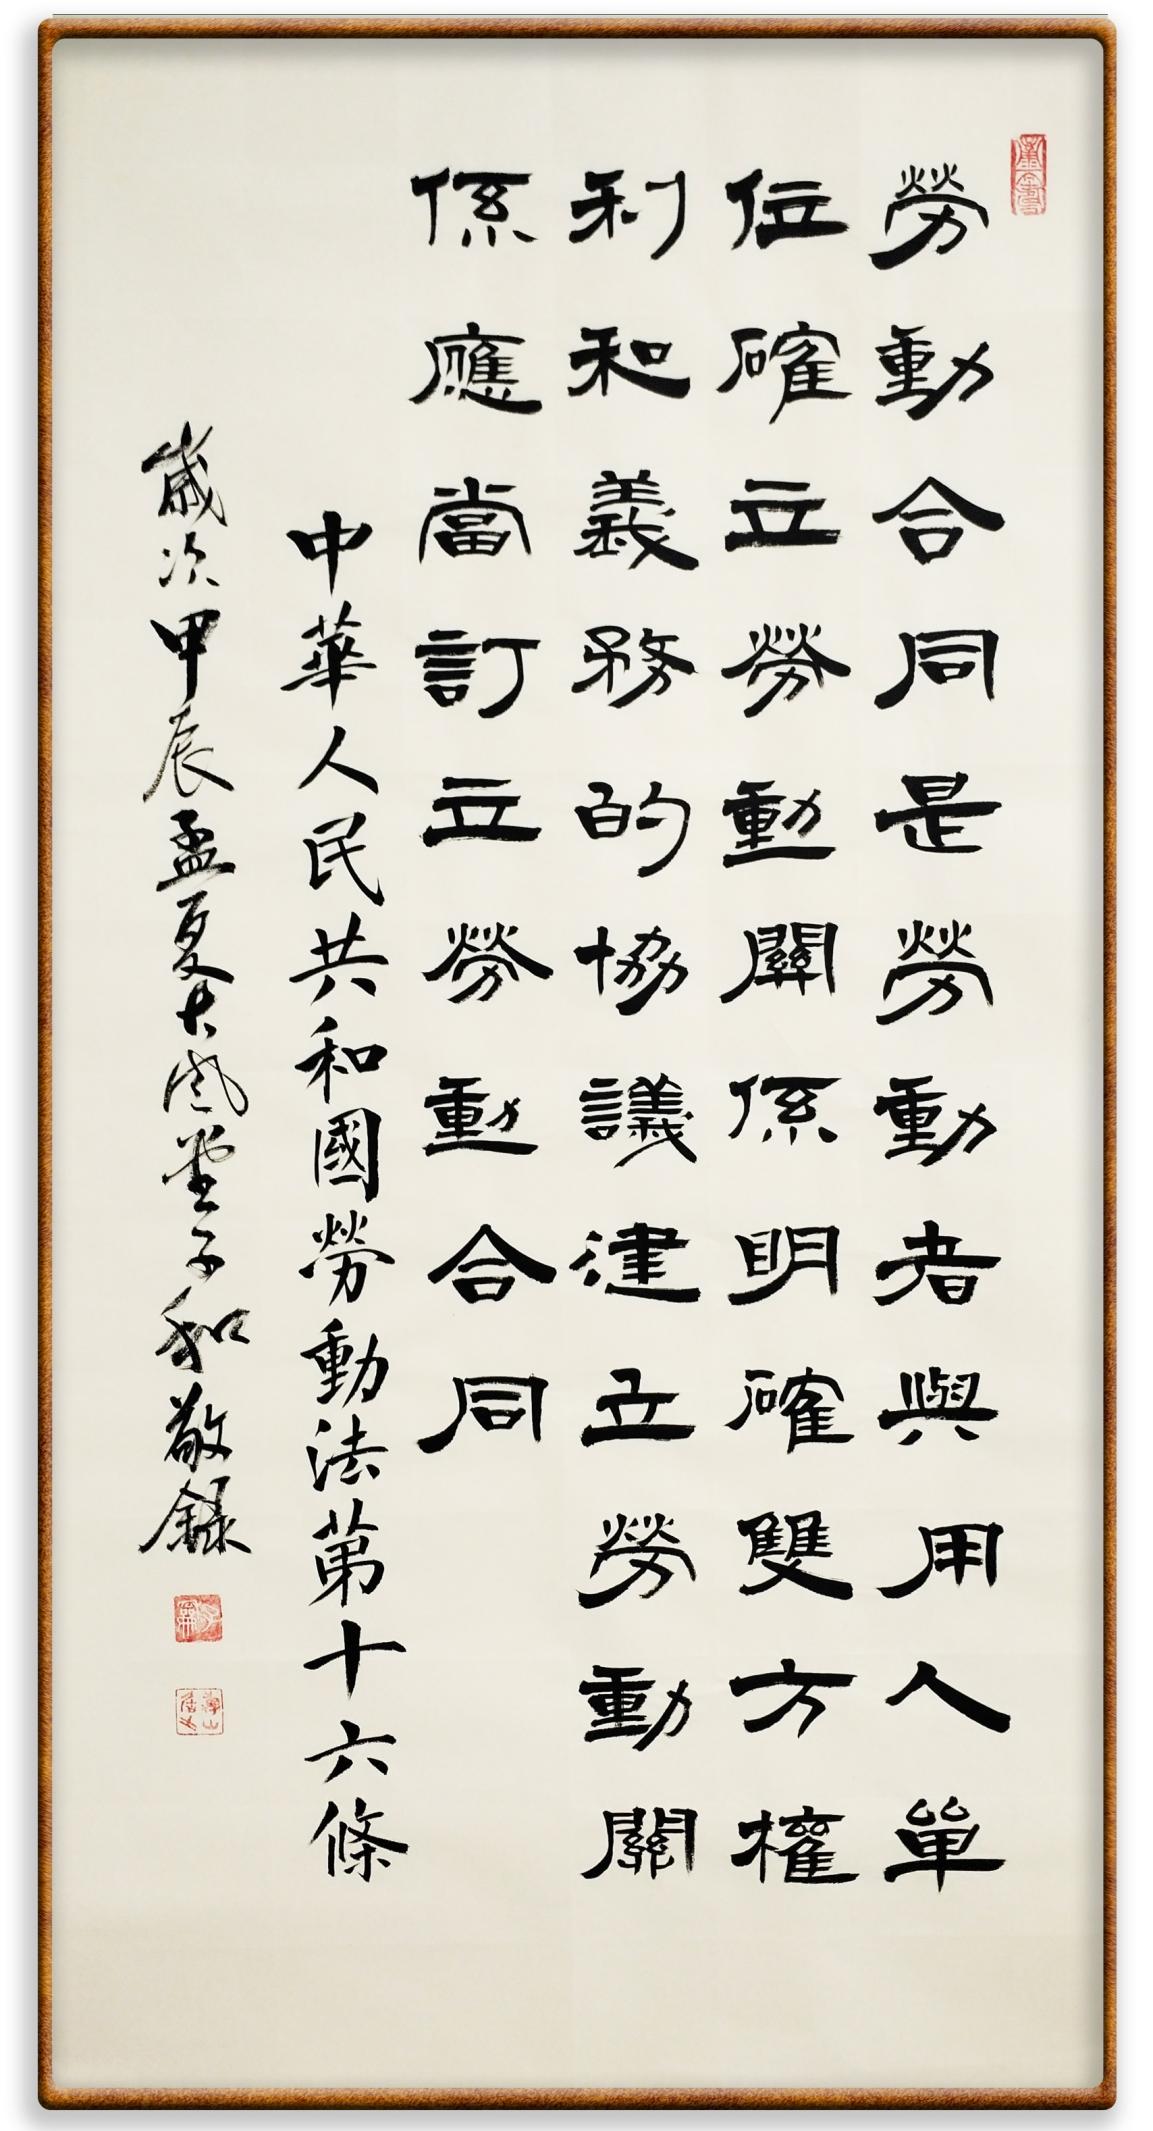 勞動合同是勞動者與用人單
位確立勞動關係明確雙方權
利和義務的協議建立勞動關
係應當訂立勞動合同
中華人民共和國勞動法第十六條
歲次甲辰孟夏大風堂子和敬錄